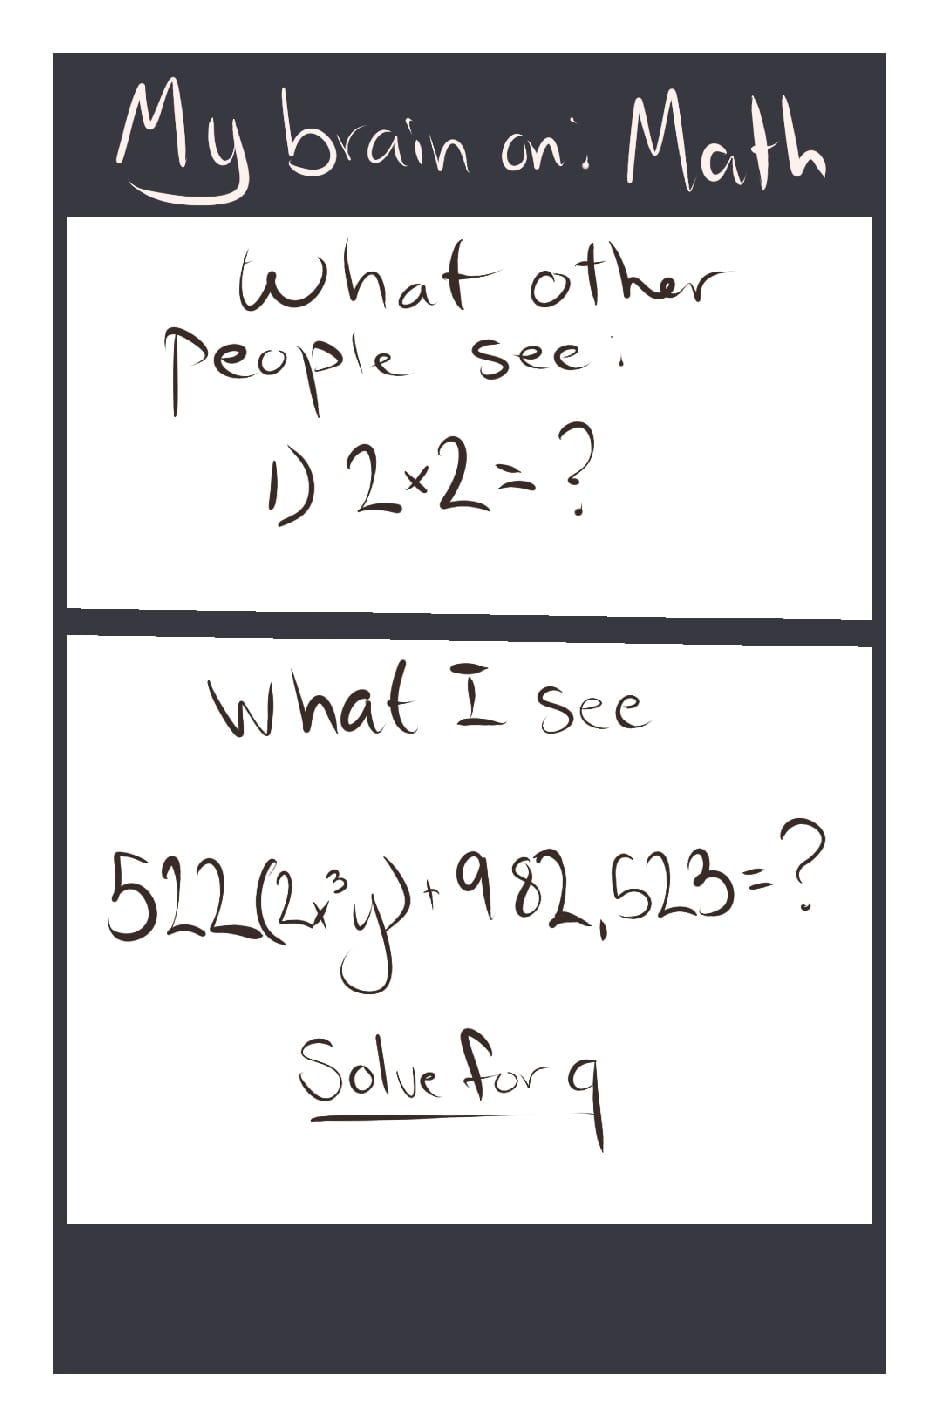 My brain on: Math
What other
people see:
1) 2×2=?
What I see
522(2x³y)+982,523=?
Solve for q